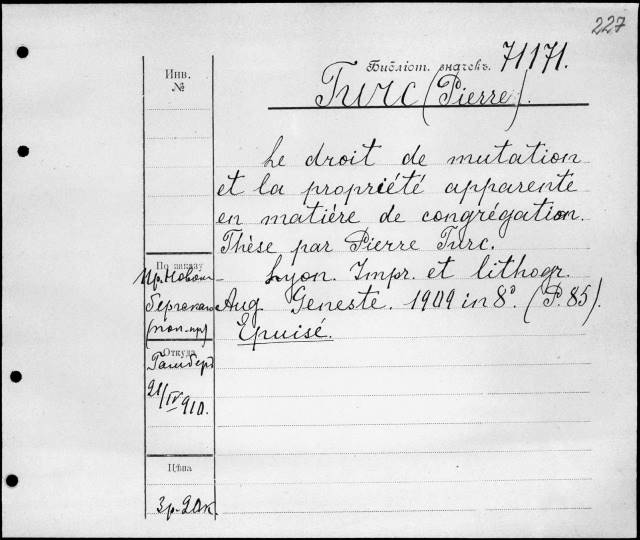 227
Библіот. значекъ. 71171.
Turc (Pierre).
Инв.
№
Le droit de mutation
et la propriété apparente
en matière de congrégation.
Thèse par Pierre Turc.
Lyon. Impr. et lithogr.
Aug. Geneste. 1909 in 8º. (P. 85).
Epuisé.
По заказу
Пр. Новом-
бергскаго
Откуда
Гамберъ
21/IV 910.
Цѣна
3 р. 20 к.